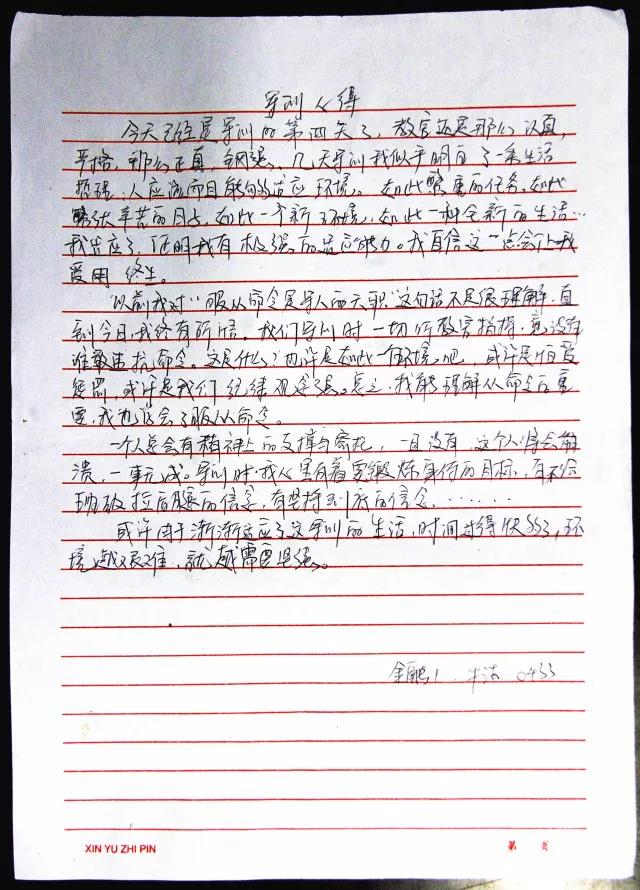 军训心得
今天已经是军训的第四天了,教官还是那么认真,
严格,那么正直,刚强。几天军训我似乎明白了一条生活
哲理:人应该而且能够适应环境。如此繁重的任务,如此
辛苦的月与,如此一个新环境,如此一种全新的生活…
我适应了,证明我有极强的适应能力。我自信这一点会让我
受用终生。
以前我对"服从命令是军人的天职"这句话不是很理解,直
到今日,我终有所悟。我们军训时一切听教官指挥,竟没有
谁敢违抗命令。这是什么?也许是如此一个环境吧,或许是怕受
惩罚,或许是我们纪律观念强。总之,我能理解从命令的重
要,我也学会了服从命令。
一个人总会有精神上的支撑与寄托,一旦没有,这个人将会崩
溃,一事无成。军训时,我心里有着要锻炼身体的目标,有不会
拉后腿的信念,有坚持到底的信念……
或许由于渐渐适应了这军训的生活,时间过得快多了,环
境越艰难,就越需要坚强。
金融1 0433
XIN YU ZHI PIN
第 页